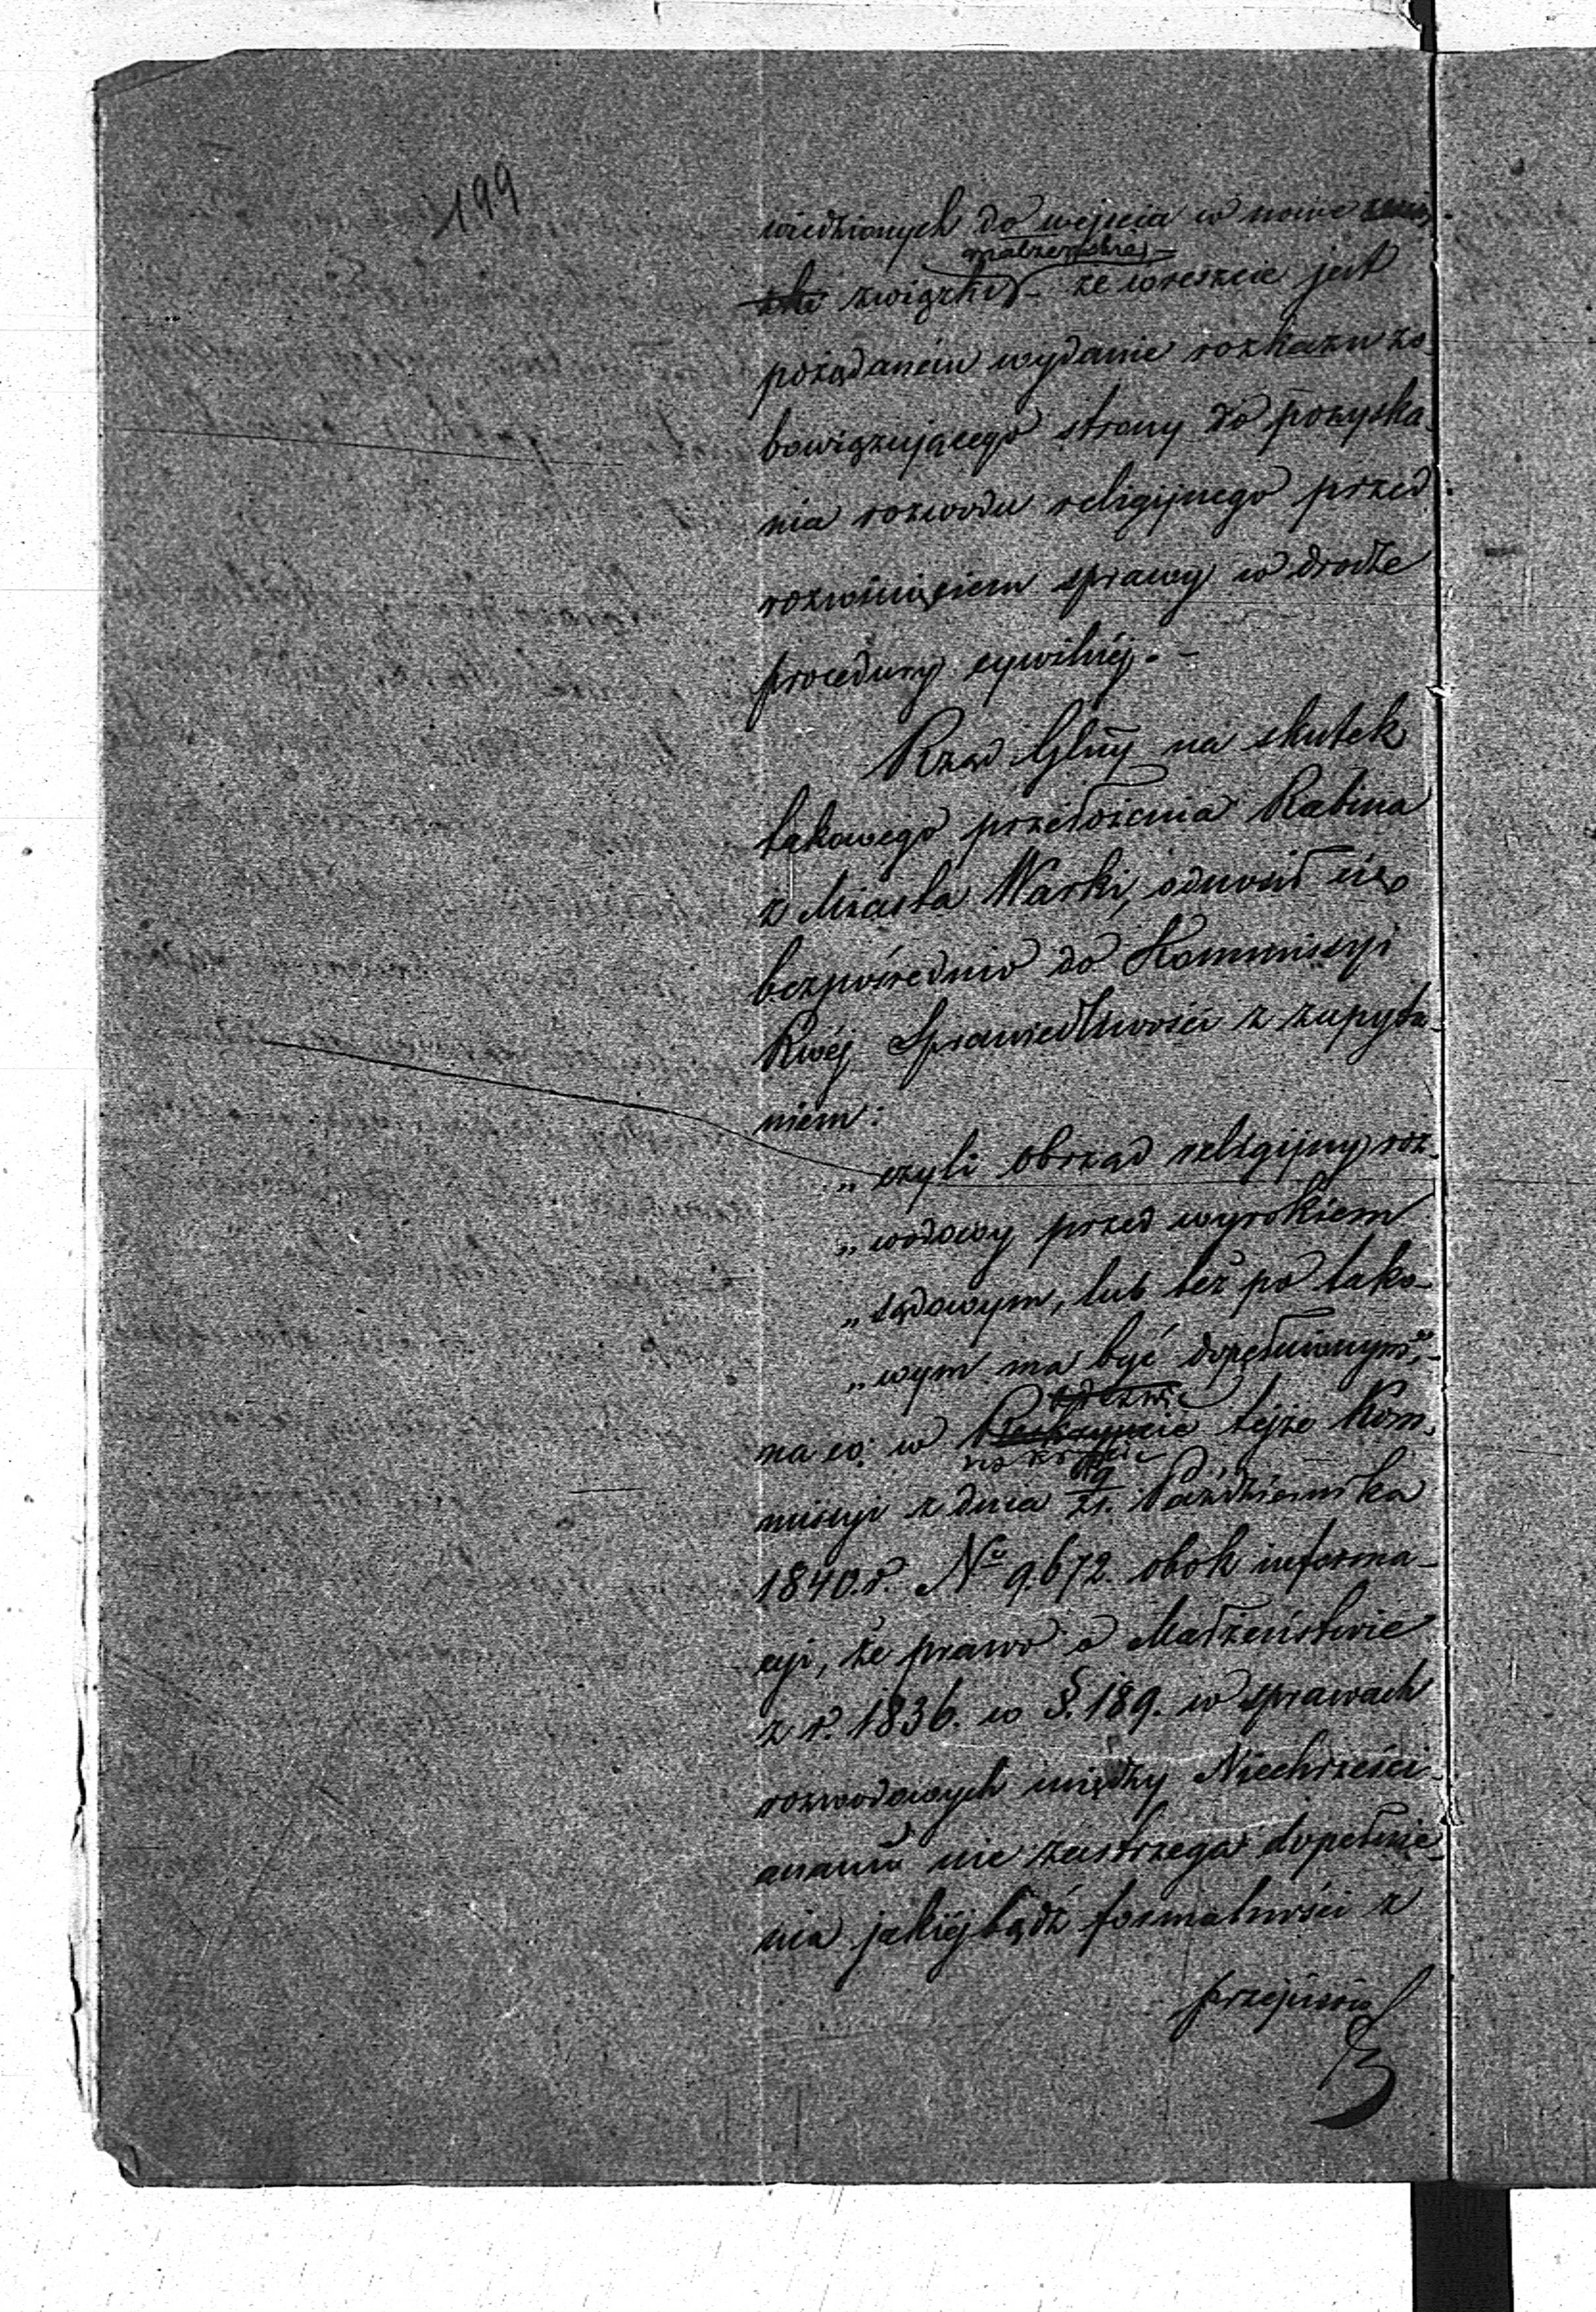 199
wiedzionych do wejścia w nowe
małżeńskie
związki – że wreszcie jest
pożądaném wydanie rozkazu zo-
bowiązującego strony do pozyska-
nia rozwodu religijnego przed
rozwinięciem sprawy w drodze
procedury cywilnéj. –
Rząd Glny na skutek
takowego przełożenia Rabina
z Miasta Warki, odniósł się
bezpośrednio do Kommissyi
Rwéj Sprawiedliwości z zapyta-
niem:
„czyli obrząd religijny roz-
„wodowy przed wyrokiem
„sądowym, lub też po tako-
„wym ma być dopełnionym”, –
na co: w Reskrypcie tejże Kom-
missyi z dnia 9/21. Października
1840. r. No 9672. obok informa-
cyi, że prawo o Małżeństwie
z r. 1836. w §. 189. w sprawach
rozwodowych między Niechrześci-
anami nie zastrzega dopełnie-
nia jakiéjbądź formalności z
przejścia